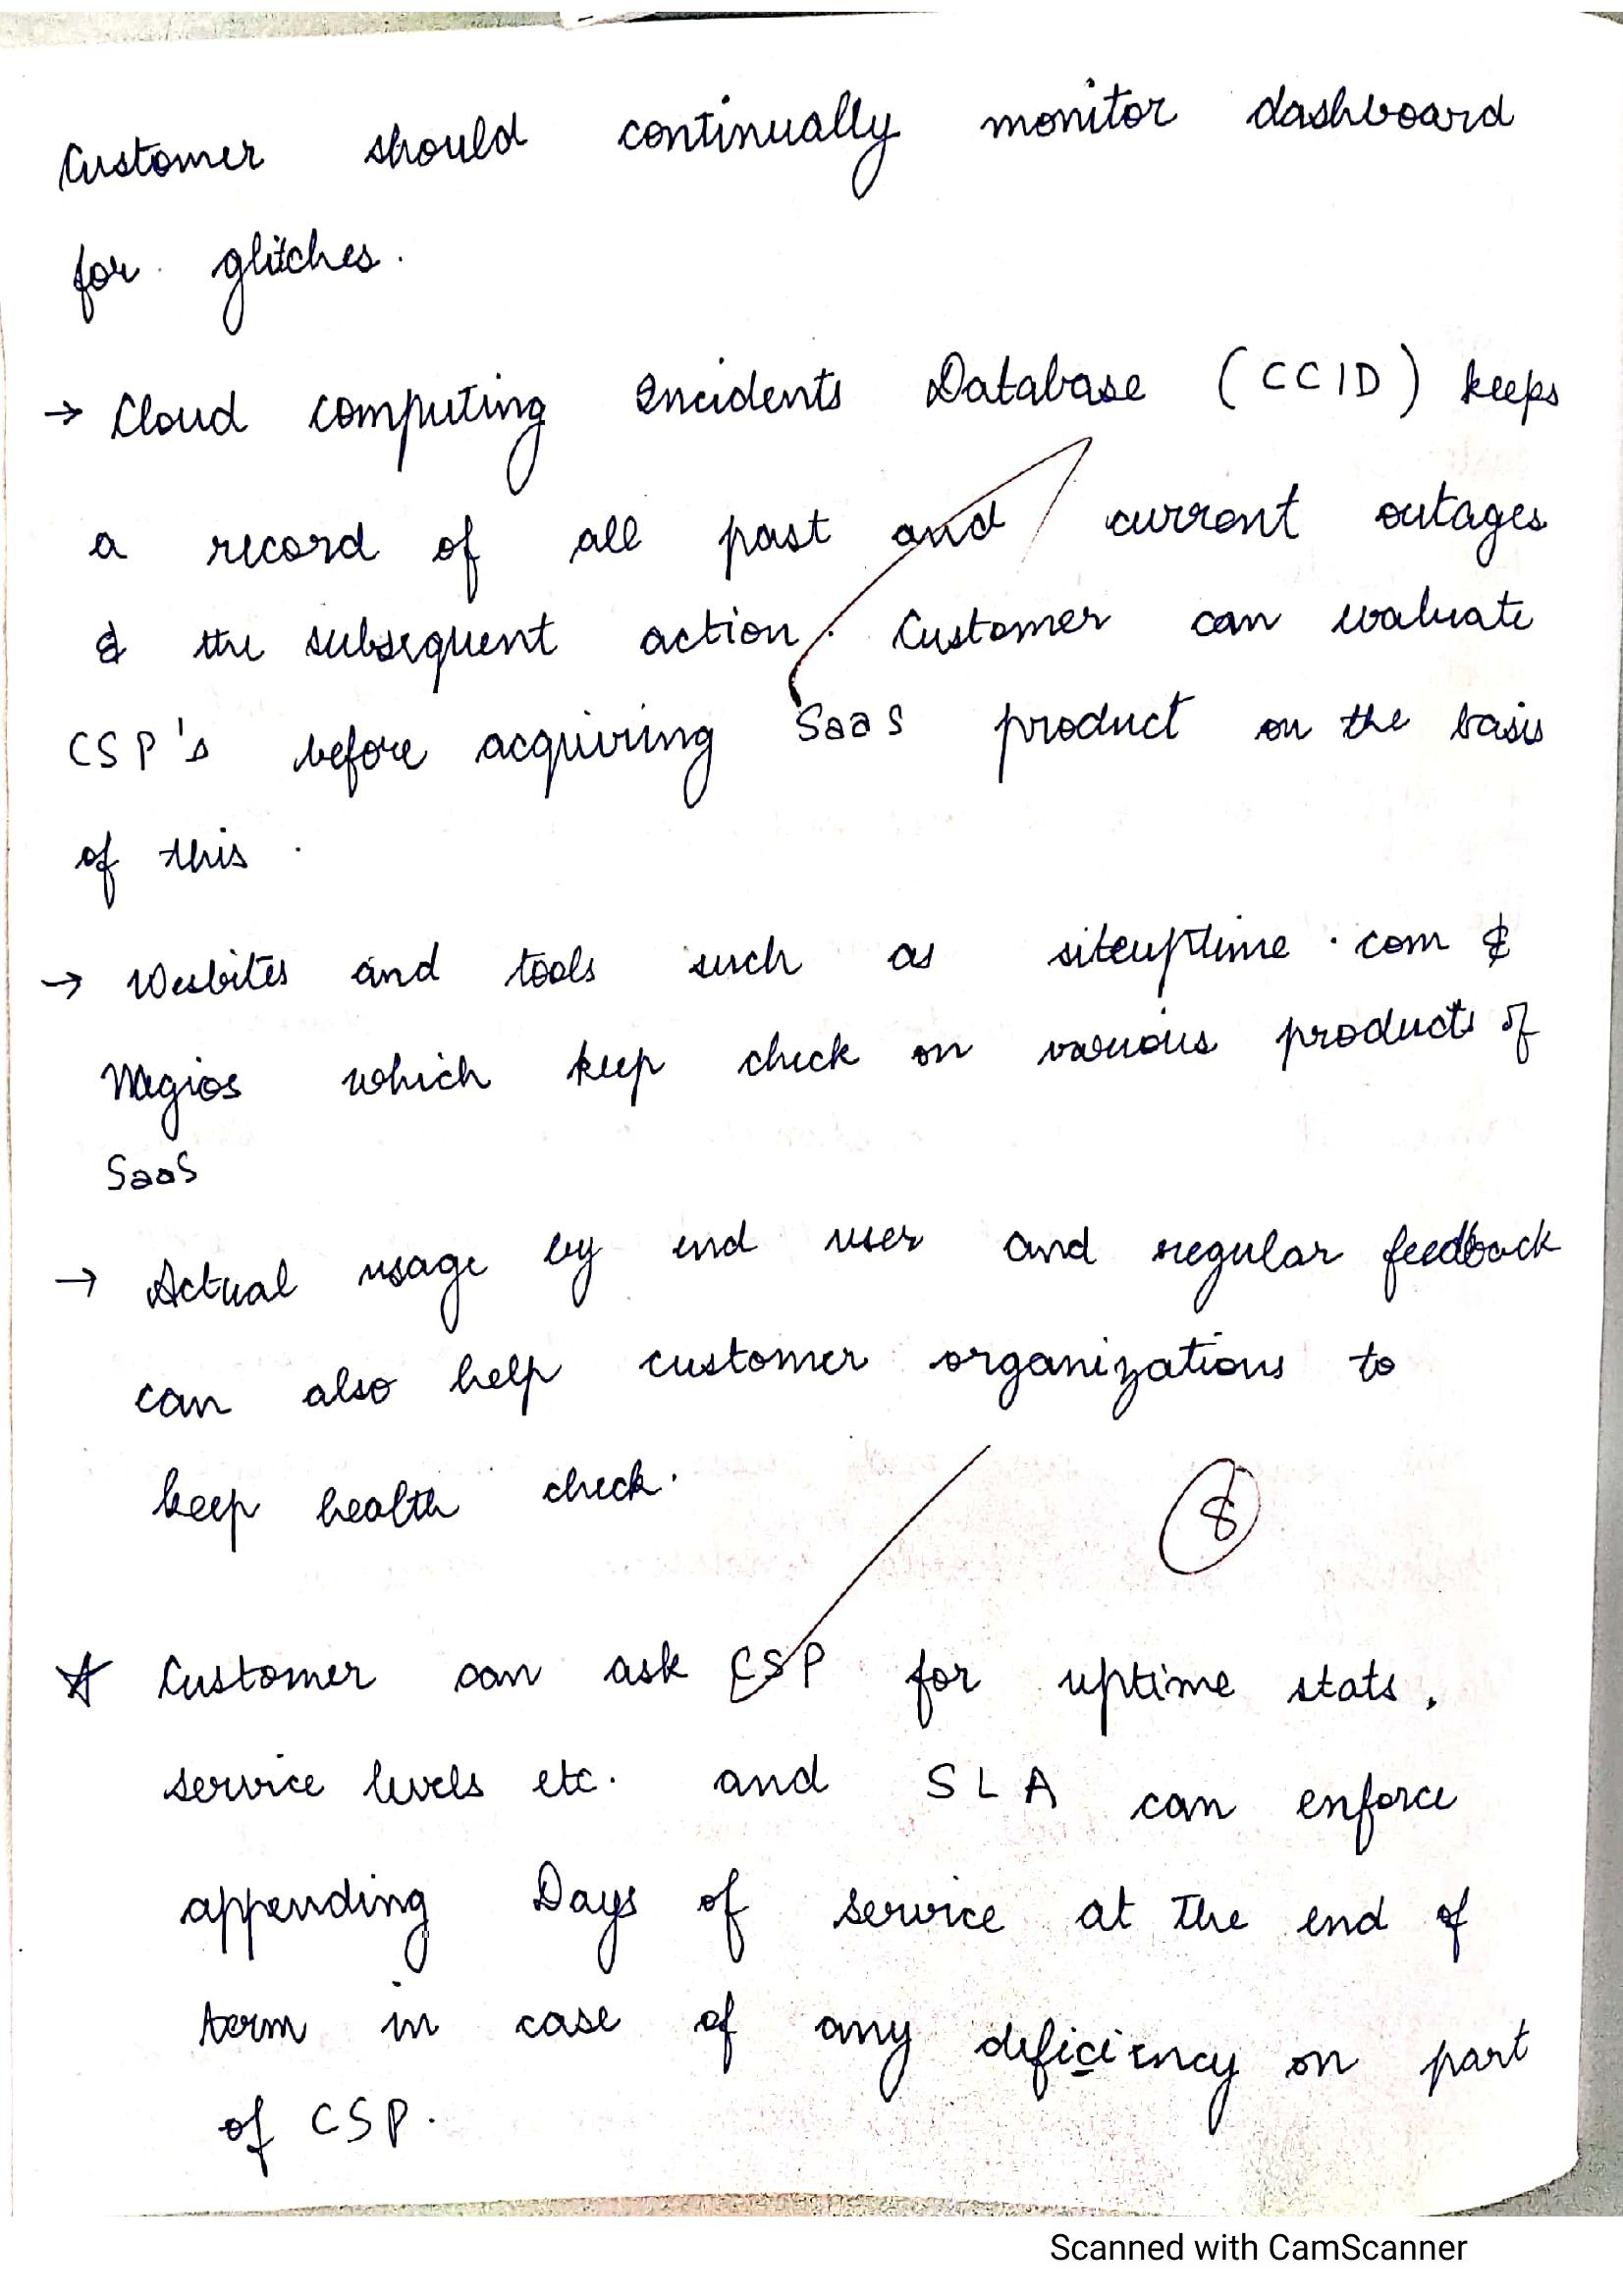 Customer should continually monitor dashboard
for glitches.
→ Cloud computing Incidents Database (CCID) keeps
a record of all past and current outages
& the subsequent action. Customer can evaluate
CSP's before acquiring SaaS product on the basis
of this.
→ Wesbites and tools such as siteuptime.com &
Nagios which keep check on various products of
SaaS
→ Actual usage by end user and regular feedback
can also help customer organizations to
keep health check.
8
☆ Customer can ask CSP for uptime stats,
service levels etc. and SLA can enforce
appending Days of service at the end of
term in case of any deficiency on part
of CSP.
Scanned with CamScanner